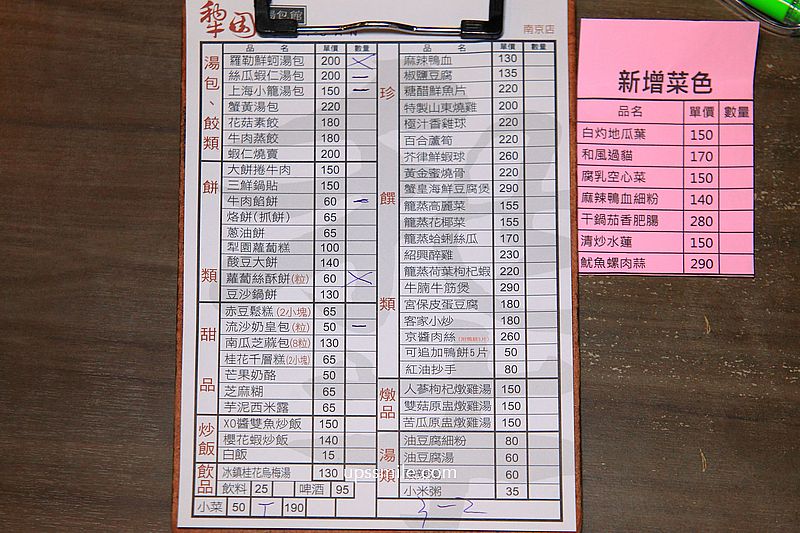 犁园 湯包館
南京店
品名 單價 數量
湯包、餃類
羅勒鮮蚵湯包 200
絲瓜蝦仁湯包 200
上海小籠湯包 150
蟹黃湯包 220
花菇素餃 180
牛肉蒸餃 180
蝦仁燒賣 200
餅類
大餅捲牛肉 150
三鮮鍋貼 150
牛肉餡餅 60
烙餅(抓餅) 65
蔥油餅 65
犁園蘿蔔糕 100
酸豆大餅 140
蘿蔔絲酥餅(粒) 60
豆沙鍋餅 130
甜品
赤豆鬆糕(2小塊) 65
流沙奶皇包(粒) 50
南瓜芝蔴包(8粒) 130
桂花千層糕(2小塊) 65
芒果奶酪 50
芝麻糊 65
芋泥西米露 65
炒飯
XO醬雙魚炒飯 150
櫻花蝦炒飯 140
白飯 15
飲品
冰鎮桂花烏梅湯 130
飲料 25 啤酒 95
小菜 50 T 190
品名 單價 數量
珍饌類
麻辣鴨血 130
椒鹽豆腐 135
糖醋鮮魚片 220
特製山東燒雞 200
極汁香雞球 220
百合蘆筍 220
芥律鮮蝦球 260
黃金蜜燒骨 220
蟹皇海鮮豆腐煲 290
籠蒸高麗菜 155
籠蒸花椰菜 155
籠蒸蛤蜊絲瓜 170
紹興醉雞 230
籠蒸荷葉枸杞蝦 220
牛腩牛筋煲 290
宮保皮蛋豆腐 180
客家小炒 180
京醬肉絲 260
可追加鴨餅5片 50
紅油抄手 80
燉品
人蔘枸杞燉雞湯 150
雙菇原盅燉雞湯 150
苦瓜原盅燉雞湯 150
湯類
油豆腐細粉 80
油豆腐湯 60
酸辣湯 60
小米粥 35
3-2
upssmile.com
新增菜色
品名 單價 數量
白灼地瓜葉 150
和風過貓 170
腐乳空心菜 150
麻辣鴨血細粉 140
干鍋茄香肥腸 280
清炒水蓮 150
魷魚螺肉蒜 290